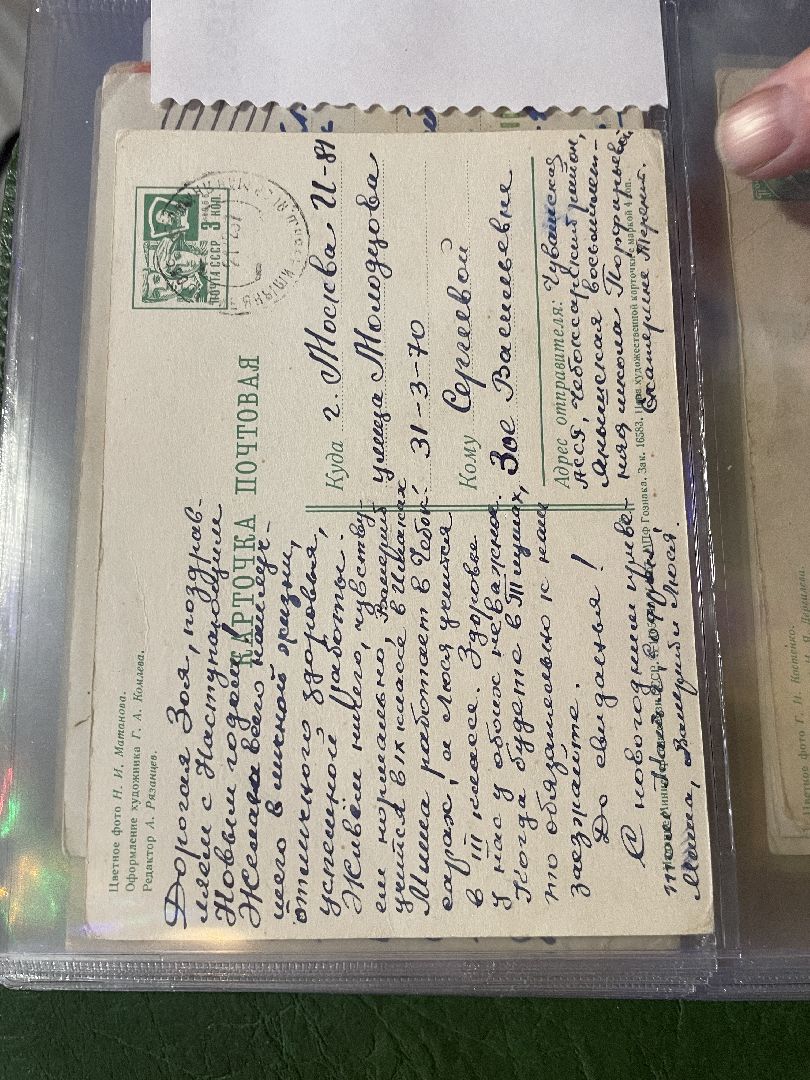 Цветное фото Н. И. Матанова.
Оформление художника Г. А. Комлева.
Редактор А. Рязанцев.
КАРТОЧКА ПОЧТОВАЯ
ПОЧТА СССР 3 КОП.
Дорогая Зоя, поздрав-
ляем с Наступающим
Новым годом!
Желаем всего наилуч-
шего в личной жизни,
отличного здоровья,
успешной работы.
Живём ничего, чувству-
ем нормально, Валерий
учится в IX классе в Ишаках
Миша работает в Чебок-
сарах, а Люся учится
в III классе. Здоровье
у нас у обоих неважное.
Когда будете в
то обязательно к нам
заезжайте.
До свиданья!
С новогодним приве-
том
Миша, Валерий и Люся.
Куда г. Москва И-81
улица Молодцова
31-3-70
Кому Сергеевой
Зое Васильевне
Адрес отправителя: Чувашская
АССР, Чебоксарский район,
восьмилет-
няя школа Порфирьевой
Екатерине
Министерство связи СССР. МПФ Гознака. Зак. 16583. Цена художественной карточки с маркой 4 коп.